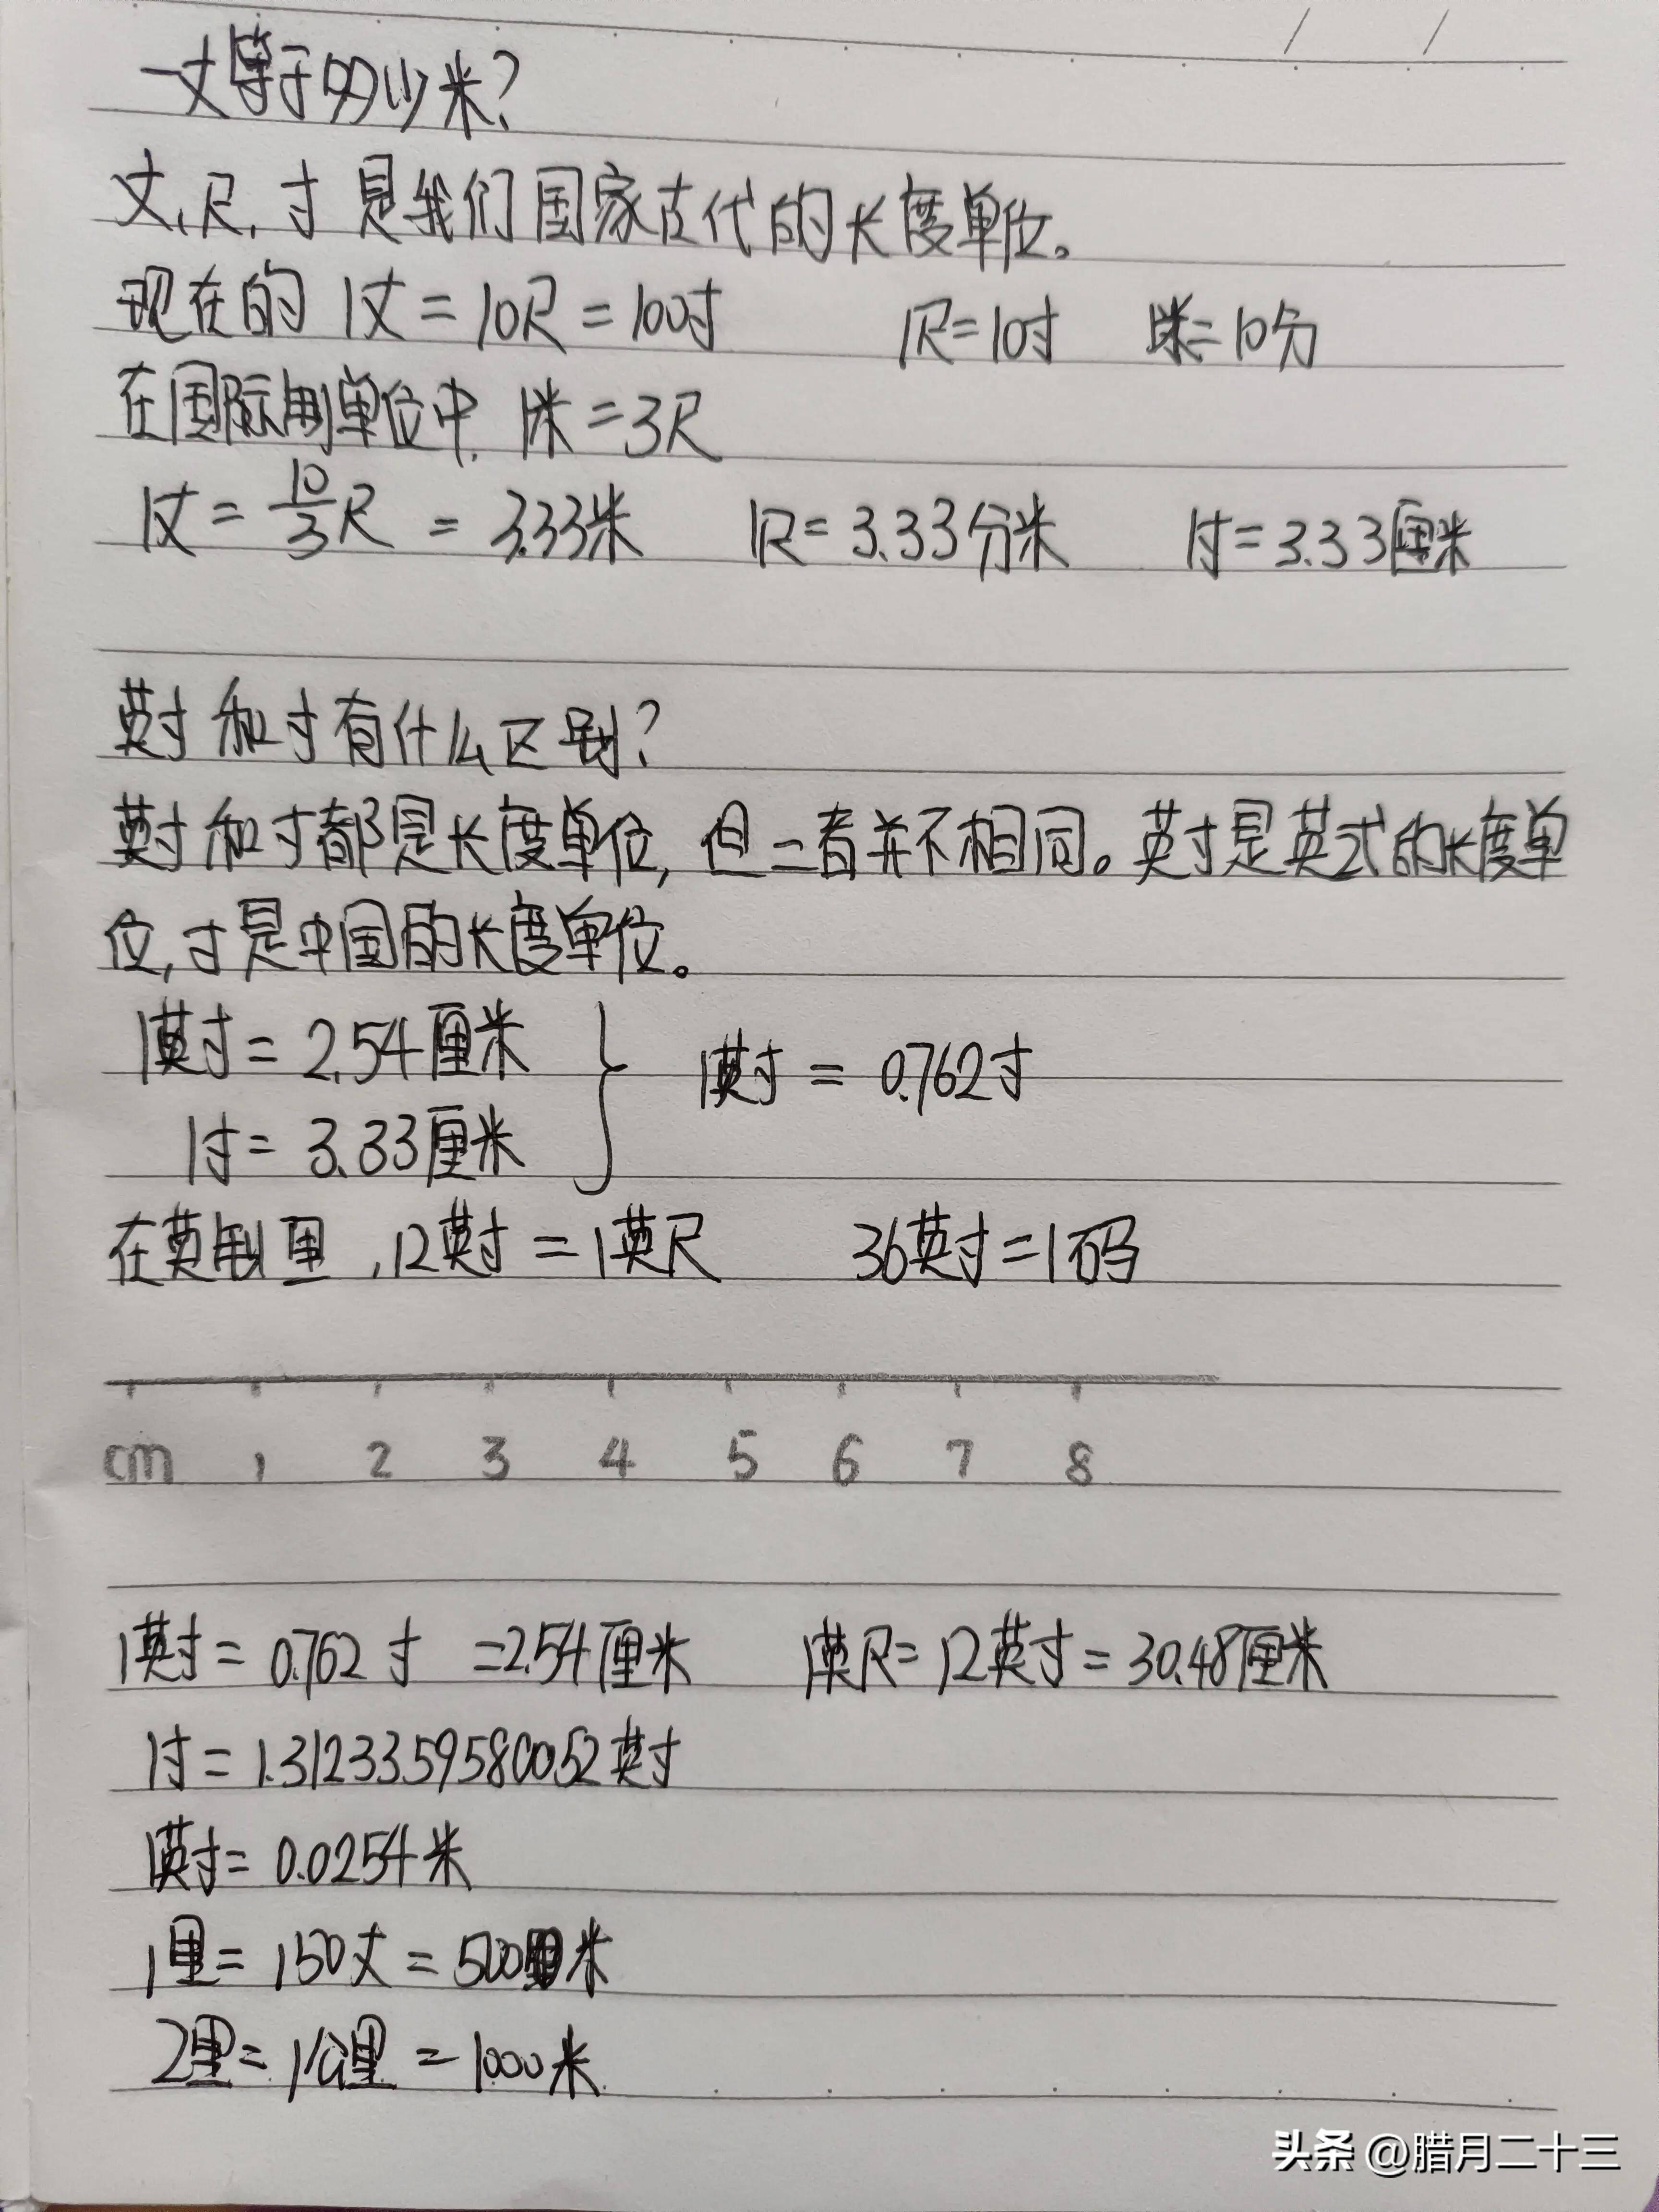 一丈等于多少米?
丈,尺,寸是我们国家古代的长度单位。
现在的 1丈=10尺=100寸 1尺=10寸 1米=10分
在国际制单位中, 1米=3尺
1丈=10/3尺=3.33米 1尺=3.33分米 1寸=3.33厘米
英寸和寸有什么区别?
英寸和寸都是长度单位,但二者并不相同。英寸是英式的长度单
位,寸是中国的长度单位。
1英寸=2.54厘米
1寸=3.33厘米
1英寸=0.762寸
在英制里,12英寸=1英尺 36英寸=1码
cm 1 2 3 4 5 6 7 8
1英寸=0.762寸=2.54厘米 1英尺=12英寸=30.48厘米
1寸=1.3123359580052英寸
1英寸=0.0254米
1里=150丈=500米
2里=1公里=1000米
头条 @腊月二十三